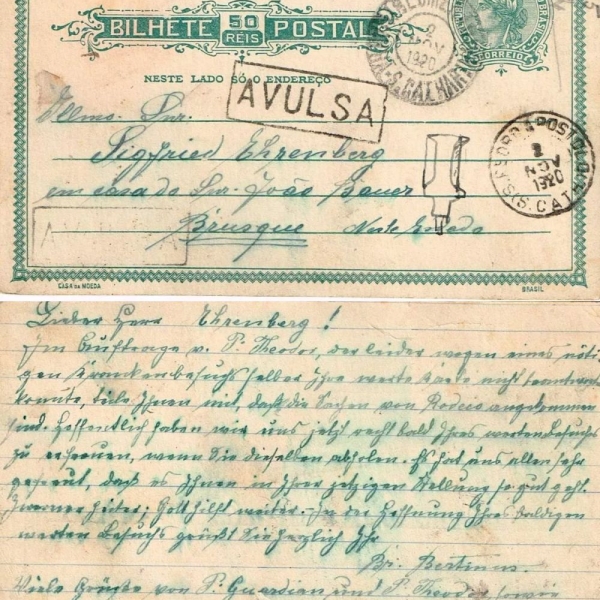 BILHETE 50 REIS POSTAL
CORREIO
BRASIL
2 NOV 1920
S. CATHARINA
NESTE LADO SÓ O ENDEREÇO
AVULSA
Illmo. Snr.
Sigfried Ehrenberg
em casa do Snr. João Bauer
Brusque Neste Estado
2 NOV 1920
S. CATH.
A A
CASA DA MOEDA
BRASIL
Lieber Herr Ehrenberg!
Im Auftrage v. P. Theodor, der leider wegen eines nöti-
gen Krankenbesuchs selber Ihre werte Karte nicht beantworten
konnte, teile Ihnen mit, daß die Sachen von Rodeio angekommen
sind. Hoffentlich haben wir uns jetzt recht bald Ihres werten Besuchs
zu erfreuen, wenn Sie dieselben abholen. Es hat uns allen sehr
gefreut, daß es Ihnen in Ihrer jetzigen Stellung so gut geht.
Immer heiter; Gott hilft weiter. In der Hoffnung Ihres baldigen
werten Besuchs grüßt Sie herzlich Ihr
Br. Bertinus.
Viele Grüße von P. Guardian und P. Theodor sowie